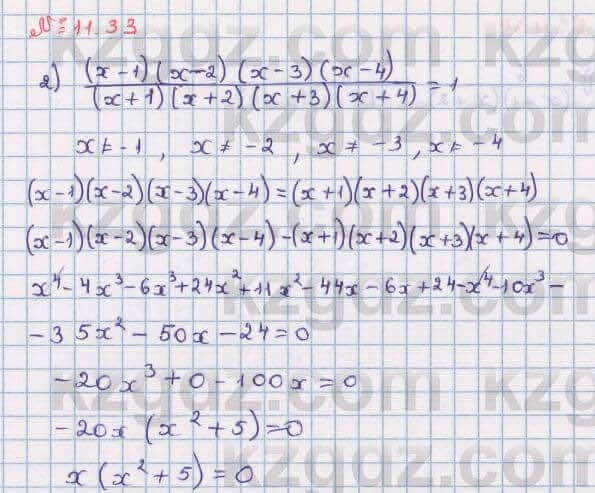 № 11.33
2) (x-1)(x-2)(x-3)(x-4)/(x+1)(x+2)(x+3)(x+4) = 1
x ≠ -1, x ≠ -2, x ≠ -3, x ≠ -4
(x-1)(x-2)(x-3)(x-4)=(x+1)(x+2)(x+3)(x+4)
(x-1)(x-2)(x-3)(x-4)-(x+1)(x+2)(x+3)(x+4)=0
x⁴-4x³-6x³+24x²+11x²-44x-6x+24-x⁴-10x³-
-35x²-50x-24=0
-20x³+0-100x=0
-20x(x²+5)=0
x(x²+5)=0
kzgdz.com